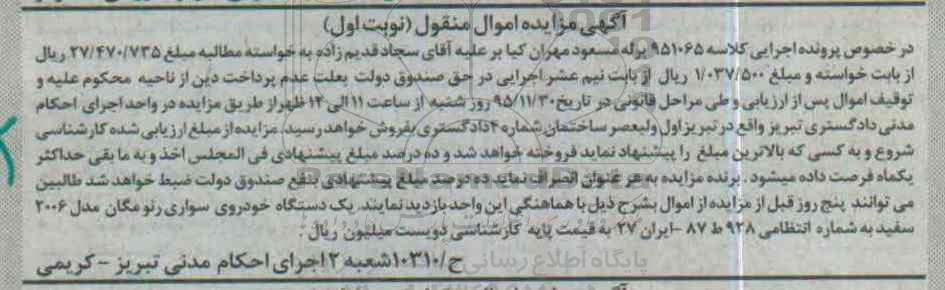 آگهی مزایده اموال منقول (نوبت اول)
در خصوص پرونده اجرایی کلاسه ۹۵۱۰۶۵ برله مسعود مهران کیا بر علیه آقای سجاد قدیم زاده به خواسته مطالبه مبلغ ۲۷/۴۷۰/۷۳۵ ریال
از بابت خواسته و مبلغ ۱/۰۳۷/۵۰۰ ریال از بابت نیم عشر اجرایی در حق صندوق دولت بعلت عدم پرداخت دین از ناحیه محکوم علیه و
توقیف اموال پس از ارزیابی و طی مراحل قانونی در تاریخ ۹۵/۱۱/۳۰ روز شنبه از ساعت ۱۱ الی ۱۲ ظهر از طریق مزایده در واحد اجرای احکام
مدنی دادگستری تبریز واقع در تبریز اول ولیعصر ساختمان شماره ۲ دادگستری بفروش خواهد رسید. مزایده از مبلغ ارزیابی شده کارشناسی
شروع و به کسی که بالاترین مبلغ را پیشنهاد نماید فروخته خواهد شد و ده درصد مبلغ پیشنهادی فی المجلس اخذ و به ما بقی حداکثر
یکماه فرصت داده میشود. برنده مزایده به هر عنوان انصراف نماید ده درصد مبلغ پیشنهادی بنفع صندوق دولت ضبط خواهد شد طالبین
می توانند پنج روز قبل از مزایده از اموال بشرح ذیل با هماهنگی این واحد بازدید نمایند. یک دستگاه خودروی سواری رنو مگان مدل ۲۰۰۶
سفید به شماره انتظامی ۹۲۸ ط ۸۷ -ایران ۲۷ به قیمت پایه کارشناسی دویست میلیون ریال.
ح/۱۰۳۱۰ شعبه ۲ اجرای احکام مدنی تبریز - کریمی